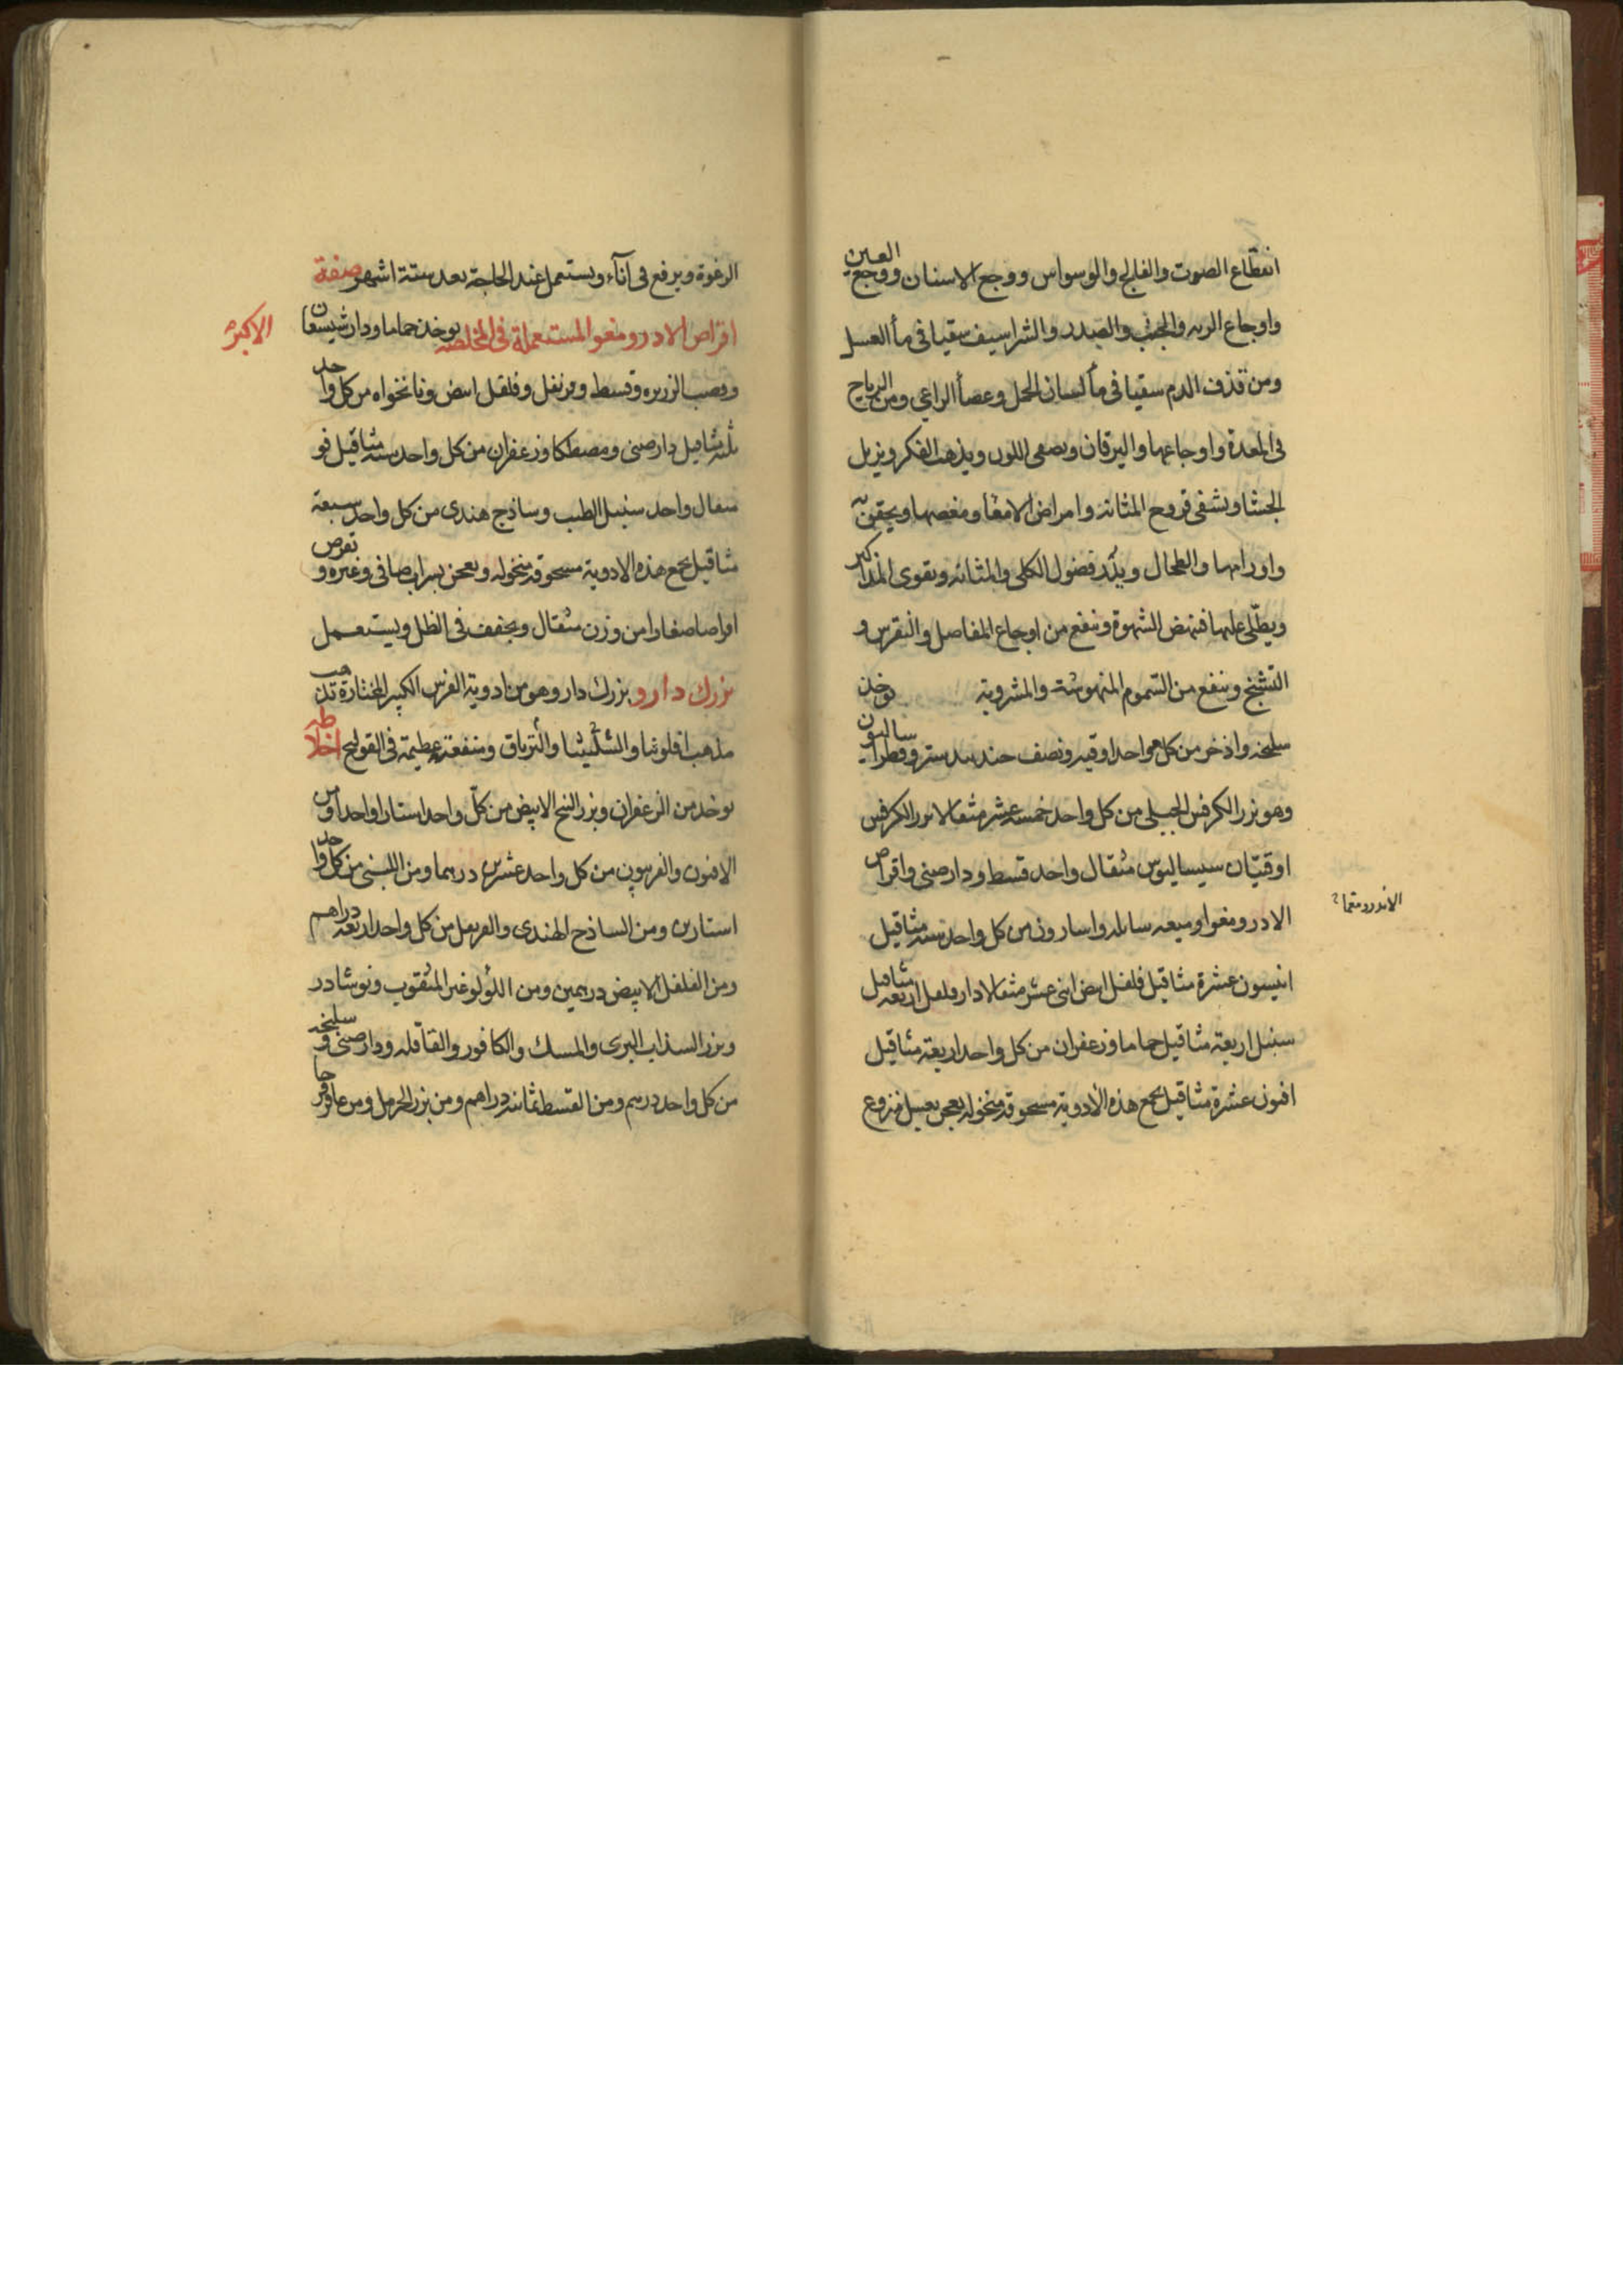 انقطاع الصوت والفالج والوسواس ووجع الاسنان ووجع العين
واوجاع الريه والجنب والصدر والشراسيف سقيا فى مآ العسل
ومن قذف الدم سقيا فى مآ لسان الحمل وعصا الراعي ومن الرياح
فى المعدة واوجاعها واليرقان وىصفى اللون ويذهب الفكر ويزيل
الجشا وىشفى قروح المثانة وامراض الامعا ومغصها ويحقن به
واورامها والطحال ويدر فضول الكلى والمثانه وىقوى المذاكير
ويطلى عليها فتنهض الشهوة وىنفع من اوجاع المفاصل والنقرس و
التشنج وىنفع من السموم المنهوشة والمشروبة يوخذ
سليخه واذخر من كل واحد اوقيه ونصف جندبيدستر وفطراساليون
وهو بزر الكرفس الجبلى من كل واحد خمسة عشر مثقالا بزر الكرفس
اوقيتان سيساليوس مثقال واحد قسط ودارصنى واقراص
الادرومغوا وميعه سايله واسارون من كل واحد سته مثاقيل
انيسون عشرة مثاقيل فلفل ابيض اثنى عشر مثقالا دارفلفل اربعه مثاقيل
سنبل اربعة مثاقيل حماما وزعفران من كل واحد اربعة مثاقيل
افيون عشرة مثاقيل يجمع هذه الادوية مسحوقه منخوله يعجن بعسل منزوع
الاندرومقما
الرغوة ويرفع فى آنآء ويستعمل عند الحاجة بعد ستة اشهر صفة
اقراص الادرومغوا المستعملة فى المخلصه يوخذ حماما ودارشيسعان
الاكبر
وقصب الزريره وقسط وقرنفل وفلفل ابيض ونانخواه من كل واحد
ثلثه مثاقيل دارصنى ومصطكا وزعفران من كل واحد سته مثاقيل فو
مثقال واحد سنبل الطيب وساذج هندى من كل واحد سبعة
مثاقيل يجمع هذه الادوية مسحوقه منخوله ويعجن بشراب صافى وغيره و تقرص
اقراصا صغارا من وزن مثقال ويجفف فى الظل ويستعمل
بزرك دارو بزرك دارو هو من ادوية الفرس الكبير المختارة تذهب
مذهب افلونيا والشليثا والترياق ومنفعته عظيمة فى القولنج اخلاطه
يوخذ من الزعفران وبزر البنج الابيض من كل واحد استارا واحدا ومن
الافيون والفربيون من كل واحد عشرين درهما ومن اللبنى من كل واحد
استارين ومن الساذج الهندى والقرنفل من كل واحد اربعه دراهم
ومن الفلفل الابيض درهمين ومن اللؤلو غير المثقوب ونوشادر
وبزر السذاب البرى والمسك والكافور والقاقله ودارصنى و سليخه
من كل واحد درهم ومن القسط ثمانيه دراهم ومن بزر الحرمل ومن عاقرقرحا